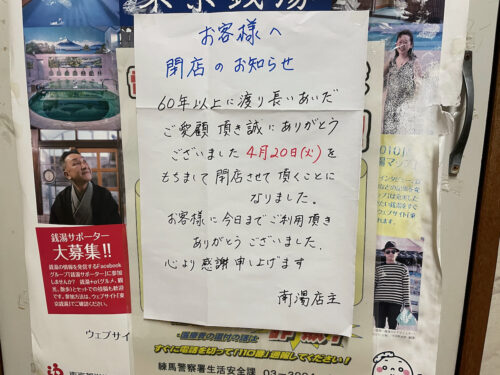 東京銭湯
お客様へ
閉店のお知らせ
60年以上に渡り長いあいだ
ご愛顧頂き誠にありがとう
ございました 4月20日(火)を
もちまして閉店させて頂くことに
なりました。
お客様に今日までご利用頂き
ありがとうございました.
心より感謝申し上げます
南湯店主
銭湯サポーター
大募集!!
銭湯の情報を発信するFacebook
グループ「銭湯サポーター」に参加
しませんか?
ウェブサイ
すぐに電話を切って「110番」通報してください!
練馬警察署生活安全課 03-